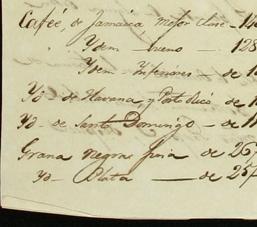 Cafée, de Jamaica Mejor Clase - 14
Ydem bueno - 128
Ydem - Ynferiores - de 1
Yd - de Havana, y Porto Rico - de 1
Yd - de Santo Domingo - de 1
Grana negra fina - de 26
Yd Plata - de 25